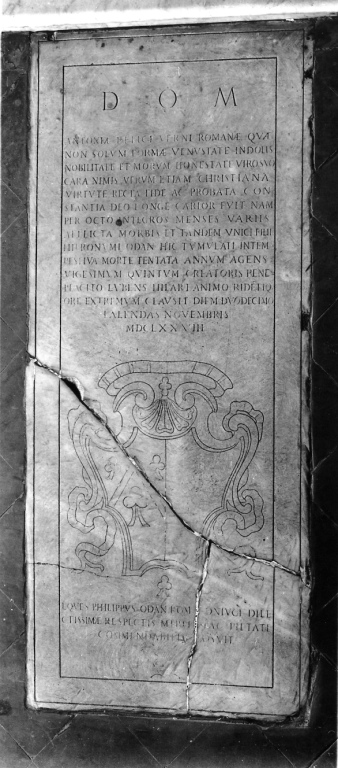 D O M
ANTONIAE FELICE VERNI ROMANAE QVAE
NON SOLVM FORMAE VENVSTATE INDOLIS
NOBILITATE ET MORVM HONESTATE VIRO SVO
CARA NIMIS VERVM ETIAM CHRISTIANA
VIRTVTE RECTA FIDE AC PROBATA CON
STANTIA DEO LONGE CARIOR FVIT NAM
PER OCTO INTEGROS MENSES VARIIS
AFFLICTA MORBIS ET TANDEM VNICI FILII
HIERONYMI ODAN HIC TVMVLATI INTEM
PESTIVA MORTE TENTATA ANNVM AGENS
VIGESIMVM QVINTVM CREATORIS BENE
PLACITO LVBENS HILARI ANIMO RIDETIQ
ORE EXTREMVM CLAVSIT DIEM DVODECIMO
KALENDAS NOVEMBRIS
MDCLXXXIII
EQVES PHILIPPVS ODAN CONIVGI DILE
CTISSIMAE RESPECTIS PIETATI